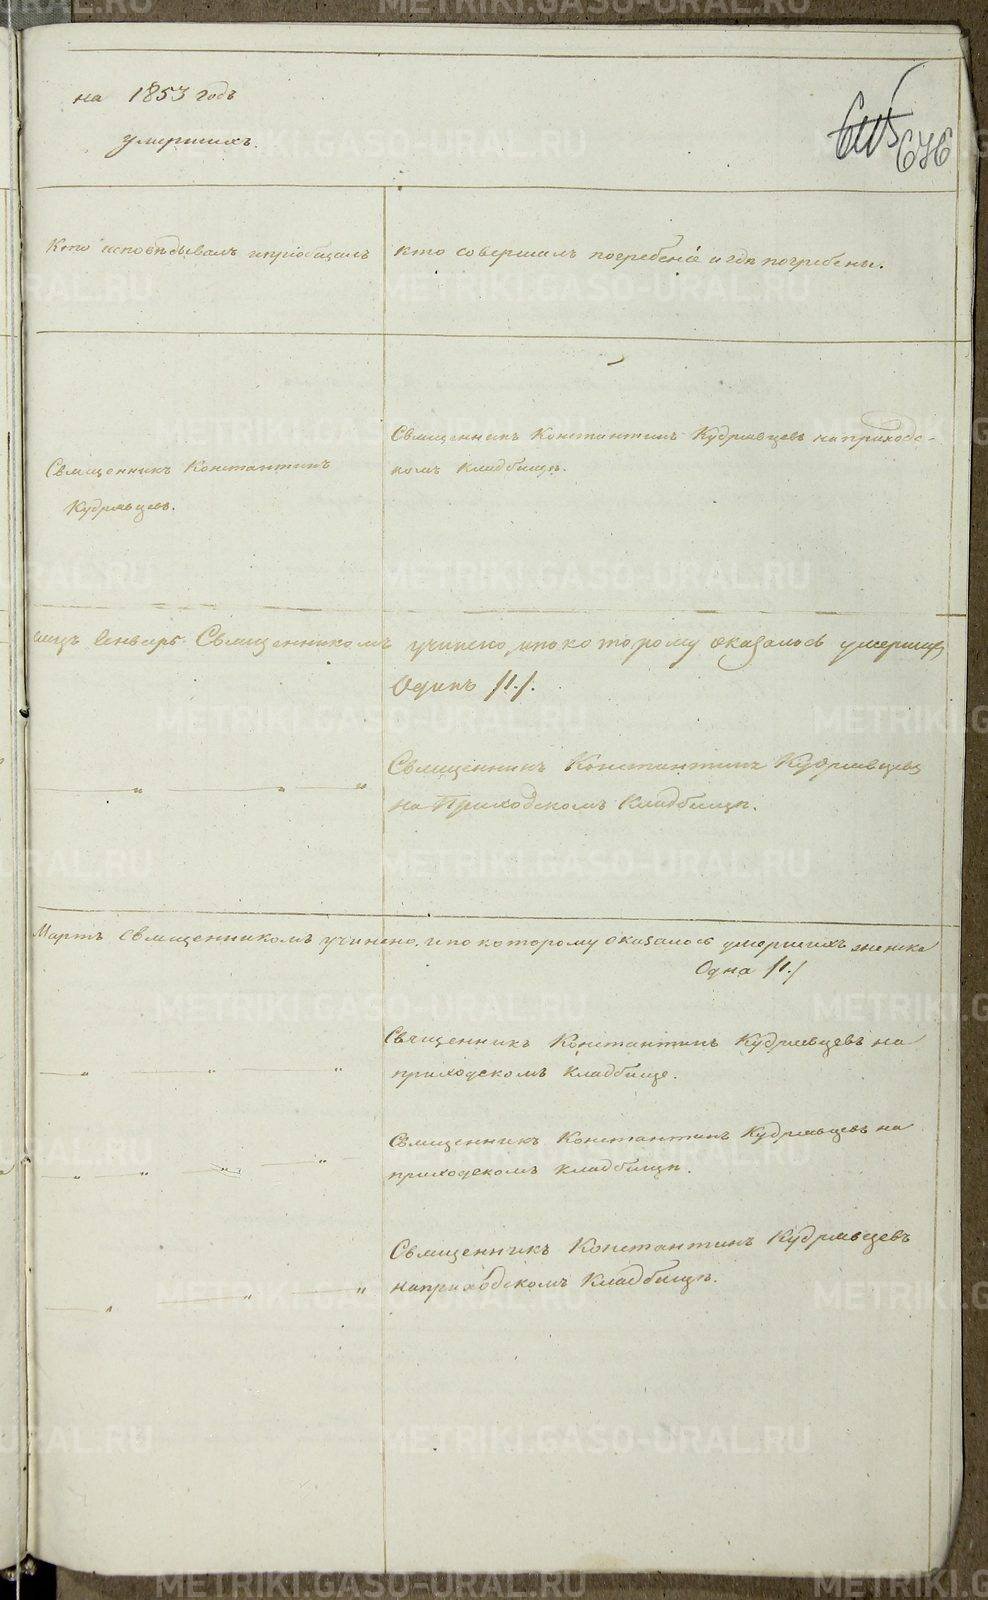 на 1853 годъ
умершихъ.
676
Кто исповѣдывалъ и пріобщалъ
кто совершалъ погребеніе и гдѣ погребены.
Священникъ Константинъ Кудрявцевъ на приходс-
комъ кладбищѣ.
Священникъ Константинъ
Кудрявцевъ.
Генварь Священникомъ учинено, и по которому оказалось умершихъ
Одинъ /1./.
Священникъ Константинъ Кудрявцевъ
на Приходскомъ Кладбищѣ.
Мартъ священникомъ учинено, и по которому оказалось умершихъ женска
Одна /1./
Священникъ Константинъ Кудрявцевъ на
приходскомъ кладбище.
Священникъ Константинъ Кудрявцевъ на
приходскомъ кладбищѣ.
Священникъ Константинъ Кудрявцевъ
на приходскомъ Кладбищѣ.
METRIKI.GASO-URAL.RU